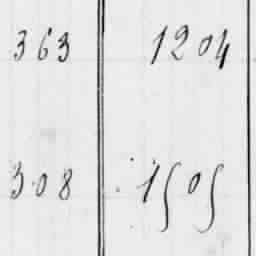 363 1204
308 1505